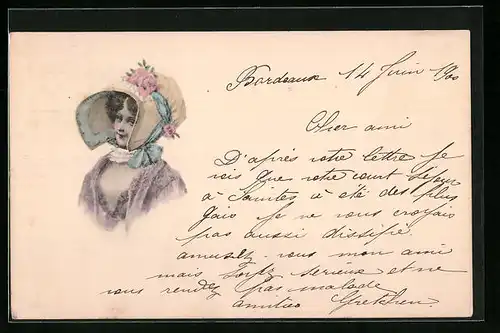 Bordeaux 14 Juin 1900
Cher ami
D'après votre lettre je
vois que votre court séjour
à Saintes a été des plus
gais je ne vous croyais
pas aussi dissipé
amusez-vous mon ami
mais soyez sérieux et ne
vous rendez pas malade
amitiés Gretchen